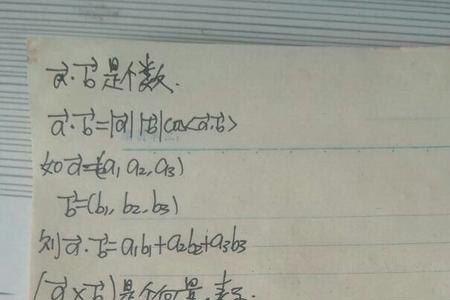 a⃗·b⃗是个数.
a⃗·b⃗=|a⃗||b⃗|cos<a⃗·b⃗>
如a⃗=(a₁,a₂,a₃)
b⃗=(b₁,b₂,b₃)
则a⃗·b⃗=a₁b₁+a₂b₂+a₃b₃
(a⃗×b⃗)是个向量,表示: